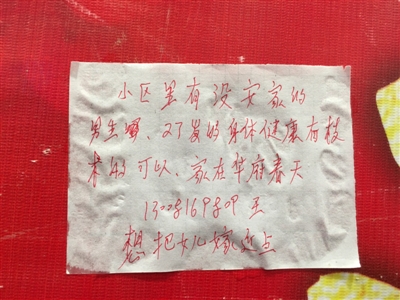 小区里有没安家的
男生嘛、27岁的身体健康有技
术的可以、家在华府春天
王
想把女儿嫁近点